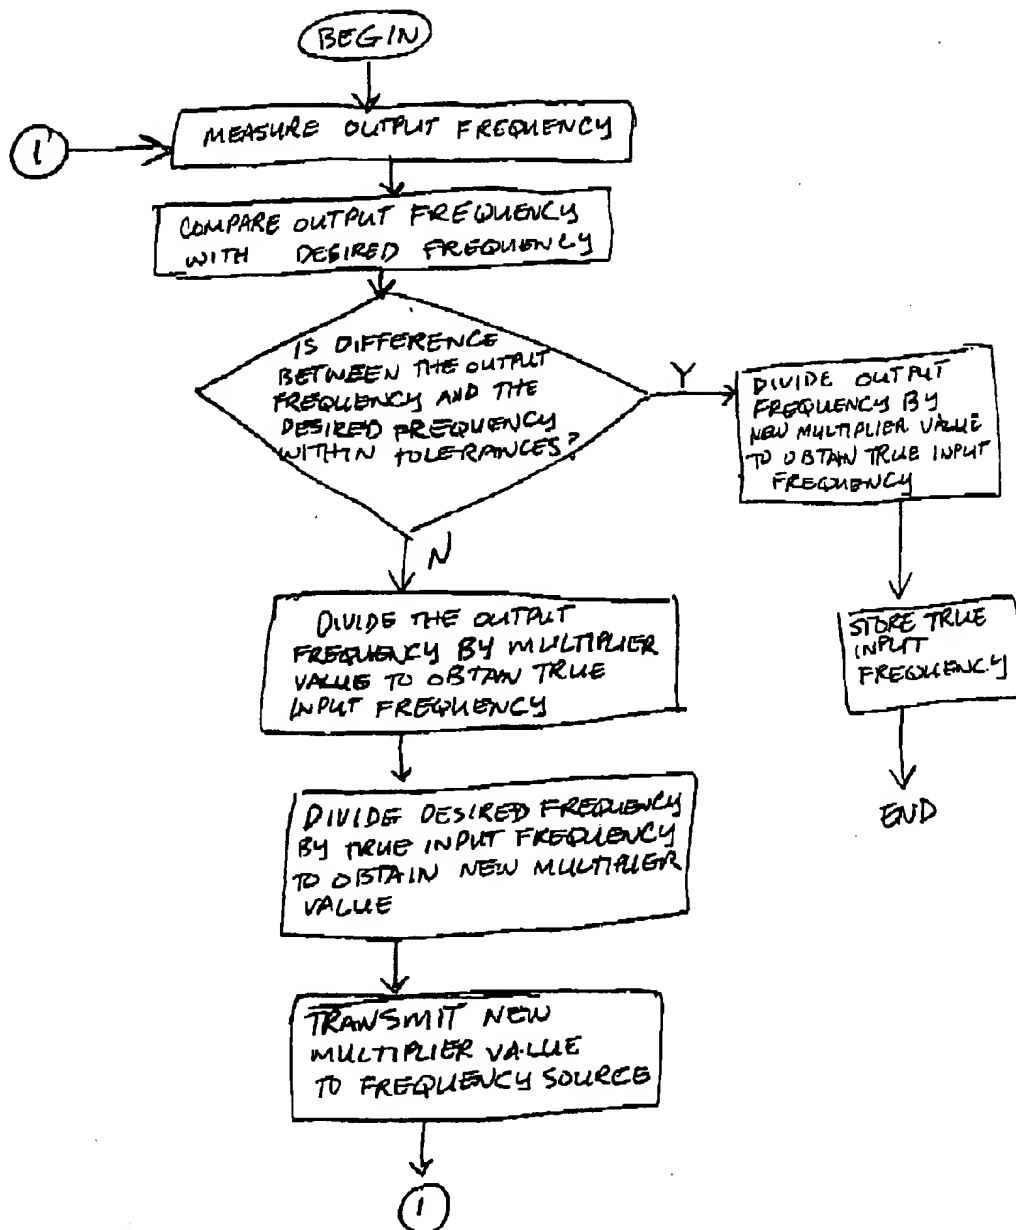 BEGIN
1
MEASURE OUTPUT FREQUENCY
COMPARE OUTPUT FREQUENCY
WITH DESIRED FREQUENCY
IS DIFFERENCE
BETWEEN THE OUTPUT
FREQUENCY AND THE
DESIRED FREQUENCY
WITHIN TOLERANCES?
Y
DIVIDE OUTPUT
FREQUENCY BY
NEW MULTIPLIER VALUE
TO OBTAIN TRUE INPUT
FREQUENCY
N
DIVIDE THE OUTPUT
FREQUENCY BY MULTIPLIER
VALUE TO OBTAIN TRUE
INPUT FREQUENCY
STORE TRUE
INPUT
FREQUENCY
END
DIVIDE DESIRED FREQUENCY
BY TRUE INPUT FREQUENCY
TO OBTAIN NEW MULTIPLIER
VALUE
TRANSMIT NEW
MULTIPLIER VALUE
TO FREQUENCY SOURCE
1